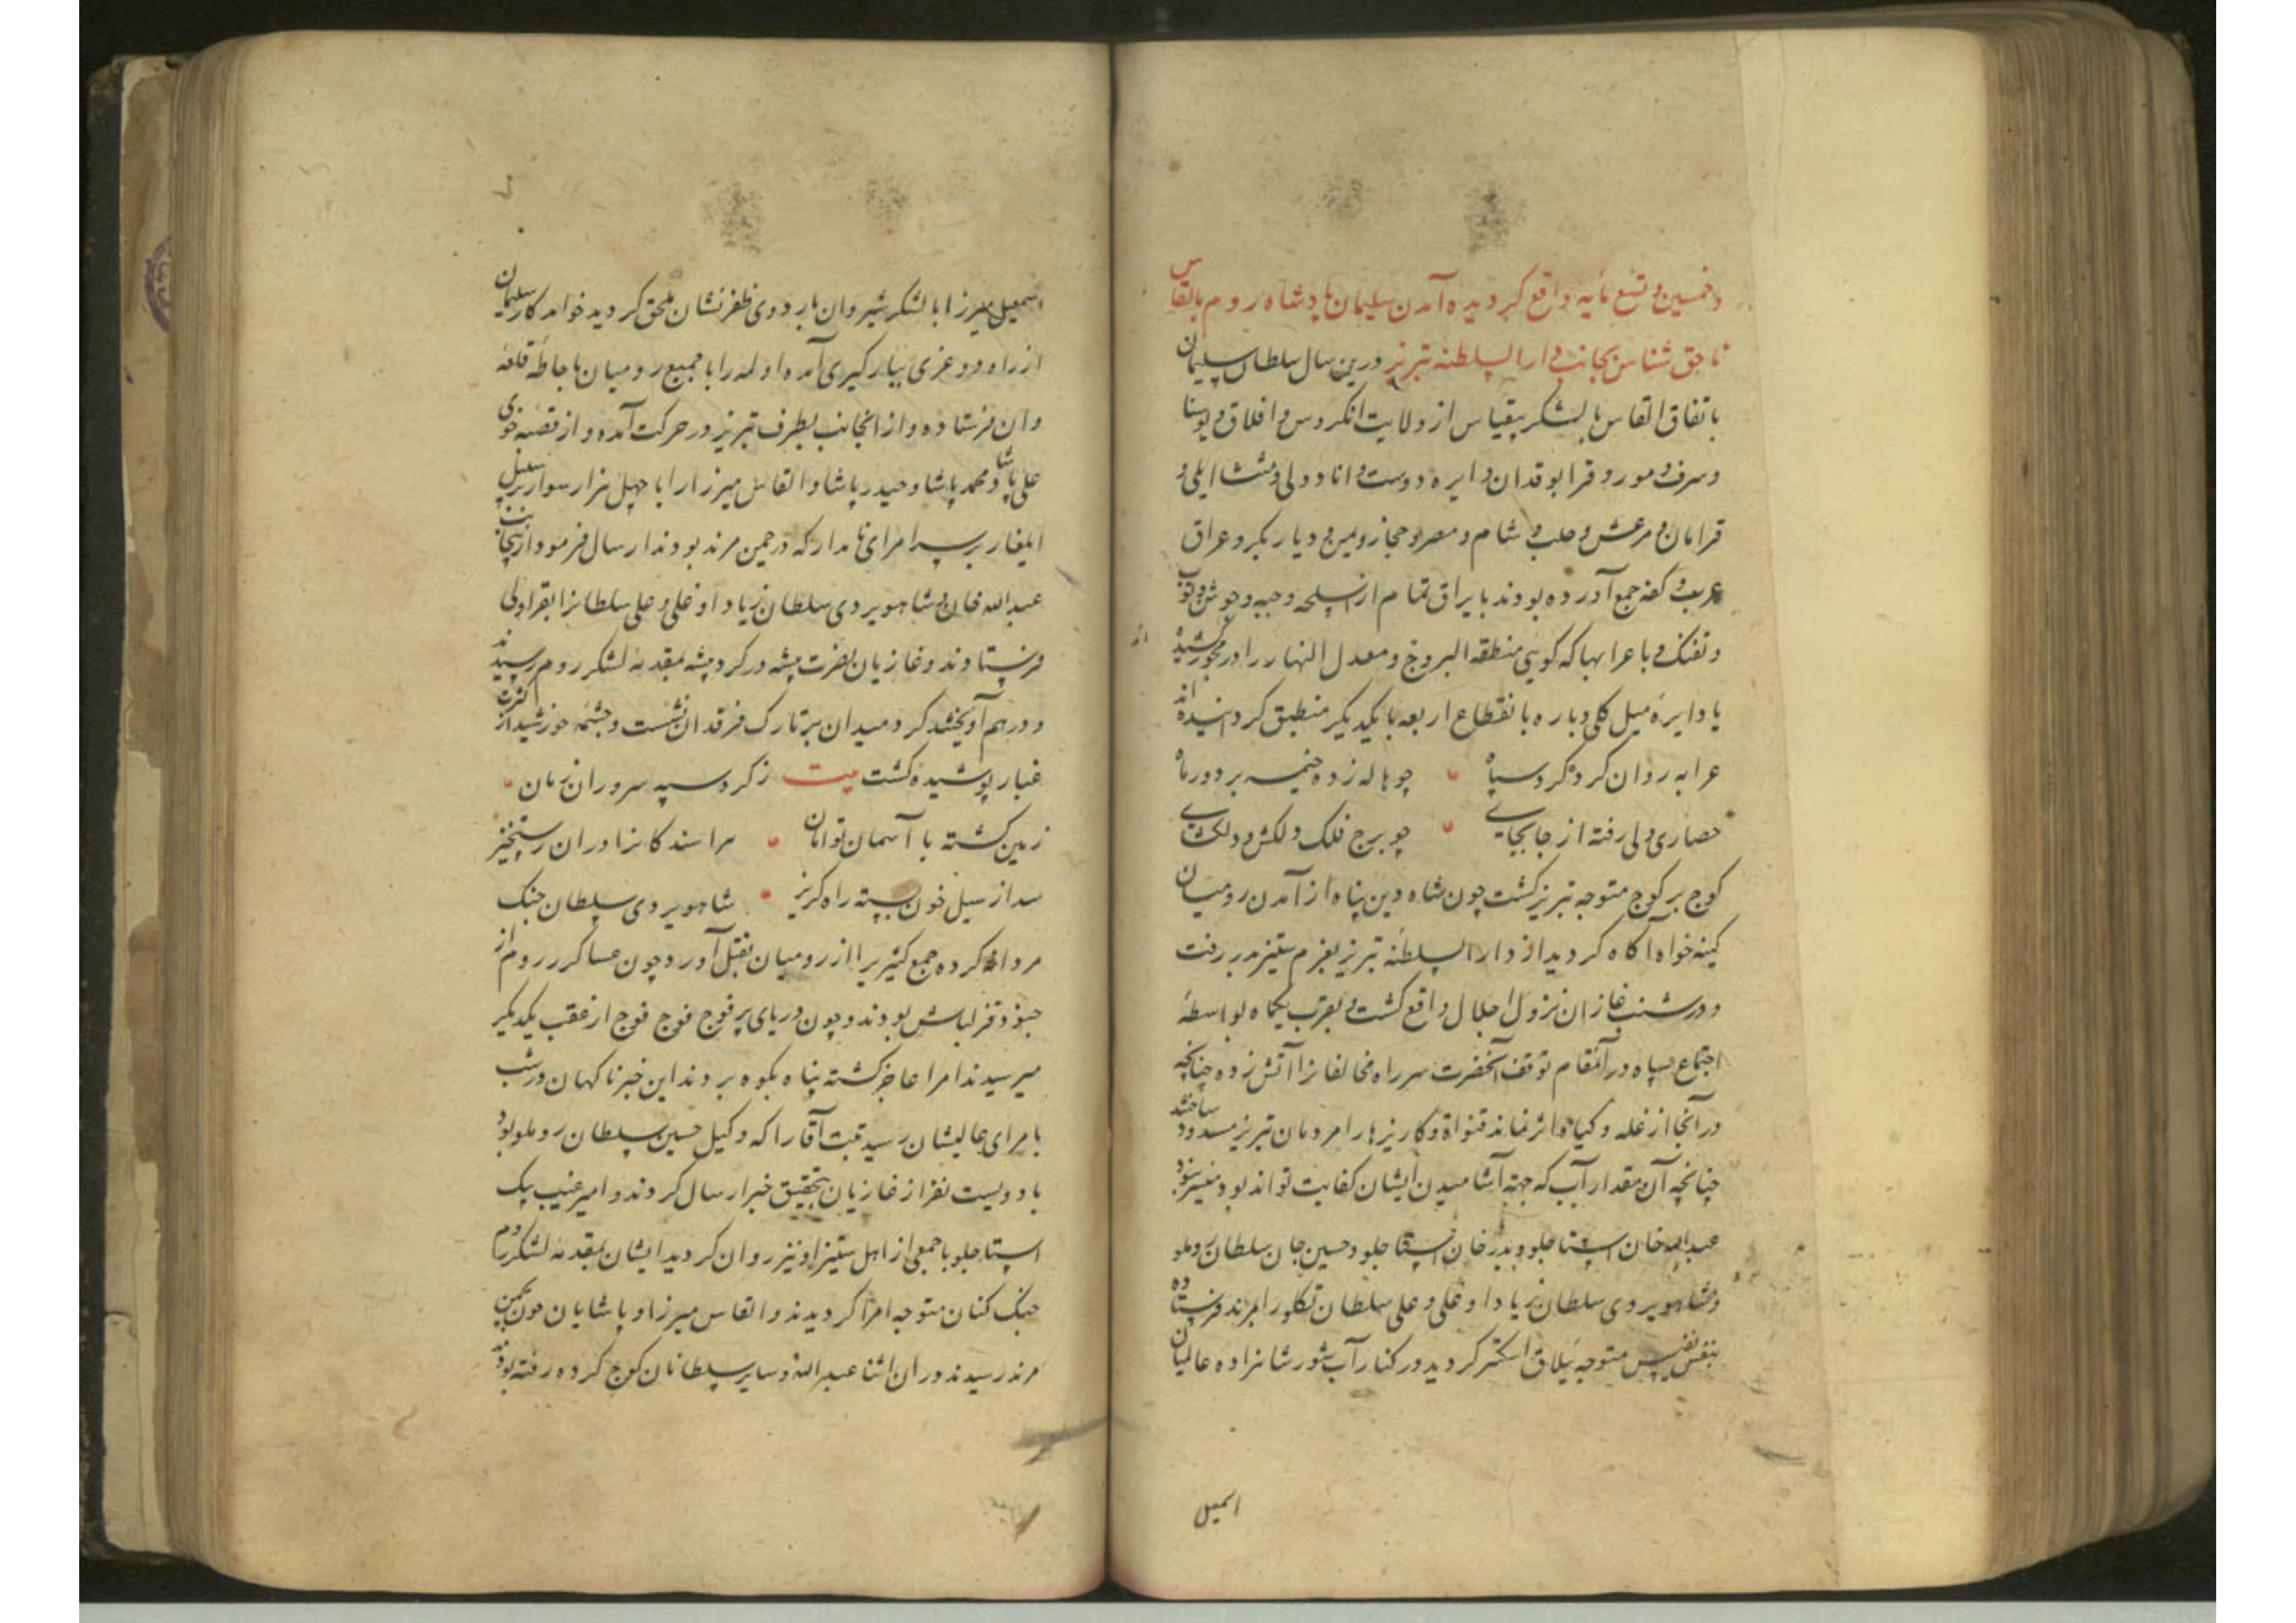 و خمسین و تسع مایه واقع گردیده آمدن سلیمان پادشاه روم بالقاس
ناحق شناس بجانب دار السلطنه تبریز درین سال سلطان سلیمان
باتفاق القاس با لشکر بیقیاس از ولایت انکروس و افلاق و بوسنا
و سرف و مورو قرابوقدان و ایره دوست و انادولی و منتشا ایلی و
قرامان و مرعش و حلب و شام و مصر و حجاز و یمن و دیار بکر و عراق
عرب و کفه جمع آورده بودند با یراق تمام از اسلحه و جبه و جوشن و توپ
و تفنک و با عرابها که گویی منطقة البروج و معدل النهار را در محور کشیده اند
یا دایره میل کلی دباره با نقطاع اربعه با یکدیگر منطبق گردانیده اند
عرابه روان کرده کرد سپاه چو هاله زده خیمه بر دور ماه
حصاری ولی رفته از جا بجایی چو برج فلک دلکش و دلکشای
کوچ بر کوچ متوجه تبریز کشت چون شاه دین پناه از آمدن رومیان
کینه خواه آکاه کردید از دار السلطنه تبریز بعزم ستیز بدر رفت
و در شنب غازان نزول اجلال واقع کشت و بقرب یکماه بواسطهٔ
اجتماع سپاه در آنمقام توقف آنحضرت سر راه مخالفانرا آتش زده چنانچه
در آنجا از غله و کیاه اثر نماند قنواة و کاریزها را مردمان تبریز مسدود ساختند
چنانچه آن مقدار آب که جهة آشامیدن ایشان کفایت تواند بود میسر نبود
عبدالله خان استاجلو و بدر خان استاجلو و حسین جان سلطان روملو
و شاهویردی سلطان زیاد اوغلی و علی سلطان تکلو را بمرند فرستاده
بنفس نفیس متوجه ییلاق اشکنبر کردید در کنار آب شور شاهزاده عالمیان
اسمعیل
اسمعیل میرزا با لشکر شیروان باردوی ظفر نشان ملحق کردید خواندکار سلیمان
از راه ودغزی بیارکیری آمده اولمه را با جمیع رومیان باحاطه قلعه
وان فرستاده و از آنجانب بطرف تبریز در حرکت آمده و از قصبه خوی
علی پاشا و محمد پاشا و حیدر پاشا و القاس میرزا را با چهل هزار سوار بر سبیل
ایلغار بر سر امرای نامدار که در چمن مرند بودند ارسال فرمود و از اینجانب
عبدالله خان و شاهویردی سلطان زیاد اوغلی و علی سلطانرا بقراولی
فرستادند و غازیان نصرت پیشه در کرد میشه بمقدمه لشکر روم رسیدند
و در هم آویختند کرد میدان بر تارک فرقدان نشست و چشمه خورشید از کثرت
غبار پوشیده کشت بیت ز کرد سپه سروران زمان
زمین کشته با آسمان توامان هراسنده کانرا در ان رستخیز
سد از سیل خون بسته راه کریز شاهویردی سلطان جنک
مردانه کرده جمع کثیریرا از رومیان بقتل آورد و چون عساکر روم از
جنود قزلباش بودند و چون دریای پر فوج فوج فوج از عقب یکدیگر
میرسیدند امرا عاجز کشته پناه بکوه بردند این خبر ناکهان در شب
بامرای عالیشان رسید تبت آقا را که وکیل حسین سلطان روملو بود
با دویست نفر از غازیان بتحقیق خبر ارسال کردند و امیر غیب بیک
استاجلو با جمعی از اهل ستیز او نیز روان کردید ایشان بمقدمه لشکر روم
جنک کنان متوجه امرا کردیدند و القاس میرزا و پاشایان چون بچمن
مرند رسیدند در ان اثنا عبدالله و سایر سلطانان کوچ کرده رفته بودند